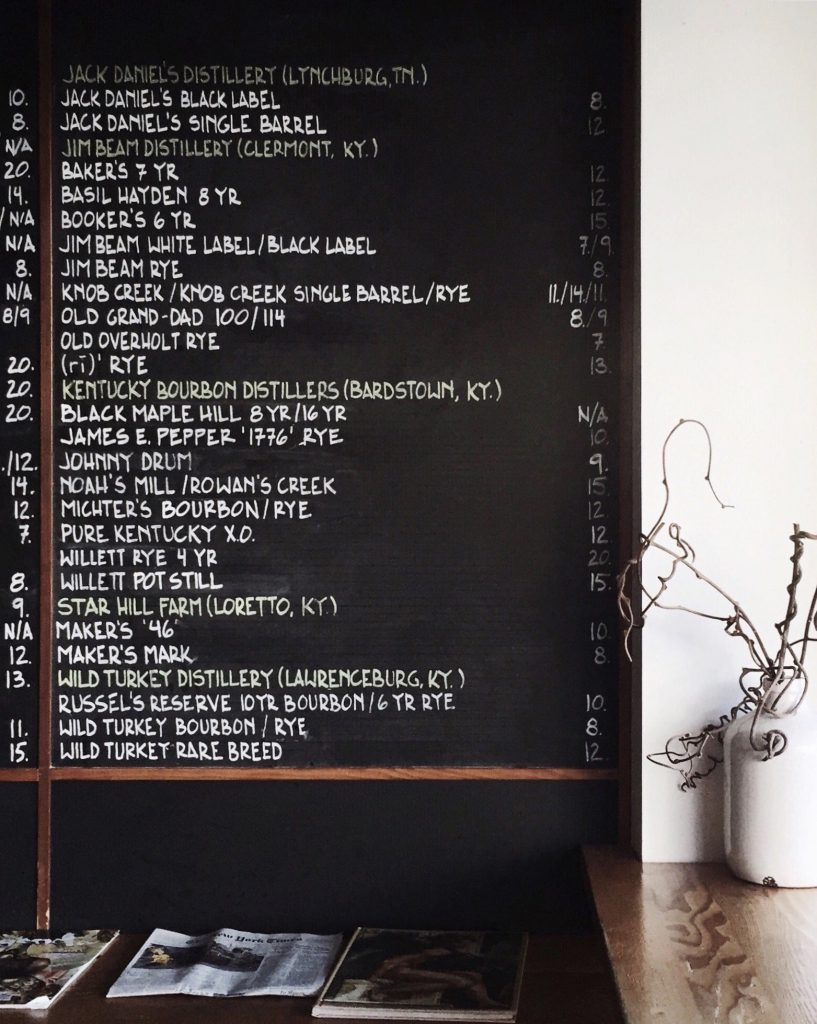 JACK DANIEL'S DISTILLERY (LYNCHBURG, TN.)
10. JACK DANIEL'S BLACK LABEL 8.
8. JACK DANIEL'S SINGLE BARREL 12
N/A JIM BEAM DISTILLERY (CLERMONT, KY.)
20. BAKER'S 7 YR 12.
14. BASIL HAYDEN 8 YR 12.
/ N/A BOOKER'S 6 YR 15
N/A JIM BEAM WHITE LABEL/BLACK LABEL 7./9.
8. JIM BEAM RYE 8.
N/A KNOB CREEK / KNOB CREEK SINGLE BARREL/RYE 11./14./11.
8/9 OLD GRAND-DAD 100/114 8./9
OLD OVERHOLT RYE 7
20. (rī)' RYE 13.
20. KENTUCKY BOURBON DISTILLERS (BARDSTOWN, KY.)
20. BLACK MAPLE HILL 8 YR/16 YR N/A
JAMES E. PEPPER '1776' RYE 10.
./12. JOHNNY DRUM 9.
14. NOAH'S MILL / ROWAN'S CREEK 15
12. MICHTER'S BOURBON/RYE 12.
7. PURE KENTUCKY X.O. 12
WILLETT RYE 4 YR 20
8. WILLETT POT STILL 15.
9. STAR HILL FARM (LORETTO, KY.)
N/A MAKER'S '46' 10.
12. MAKER'S MARK 8.
13. WILD TURKEY DISTILLERY (LAWRENCEBURG, KY.)
RUSSEL'S RESERVE 10YR BOURBON/6 YR RYE 10.
11. WILD TURKEY BOURBON / RYE 8.
15. WILD TURKEY RARE BREED 12.
New York Times